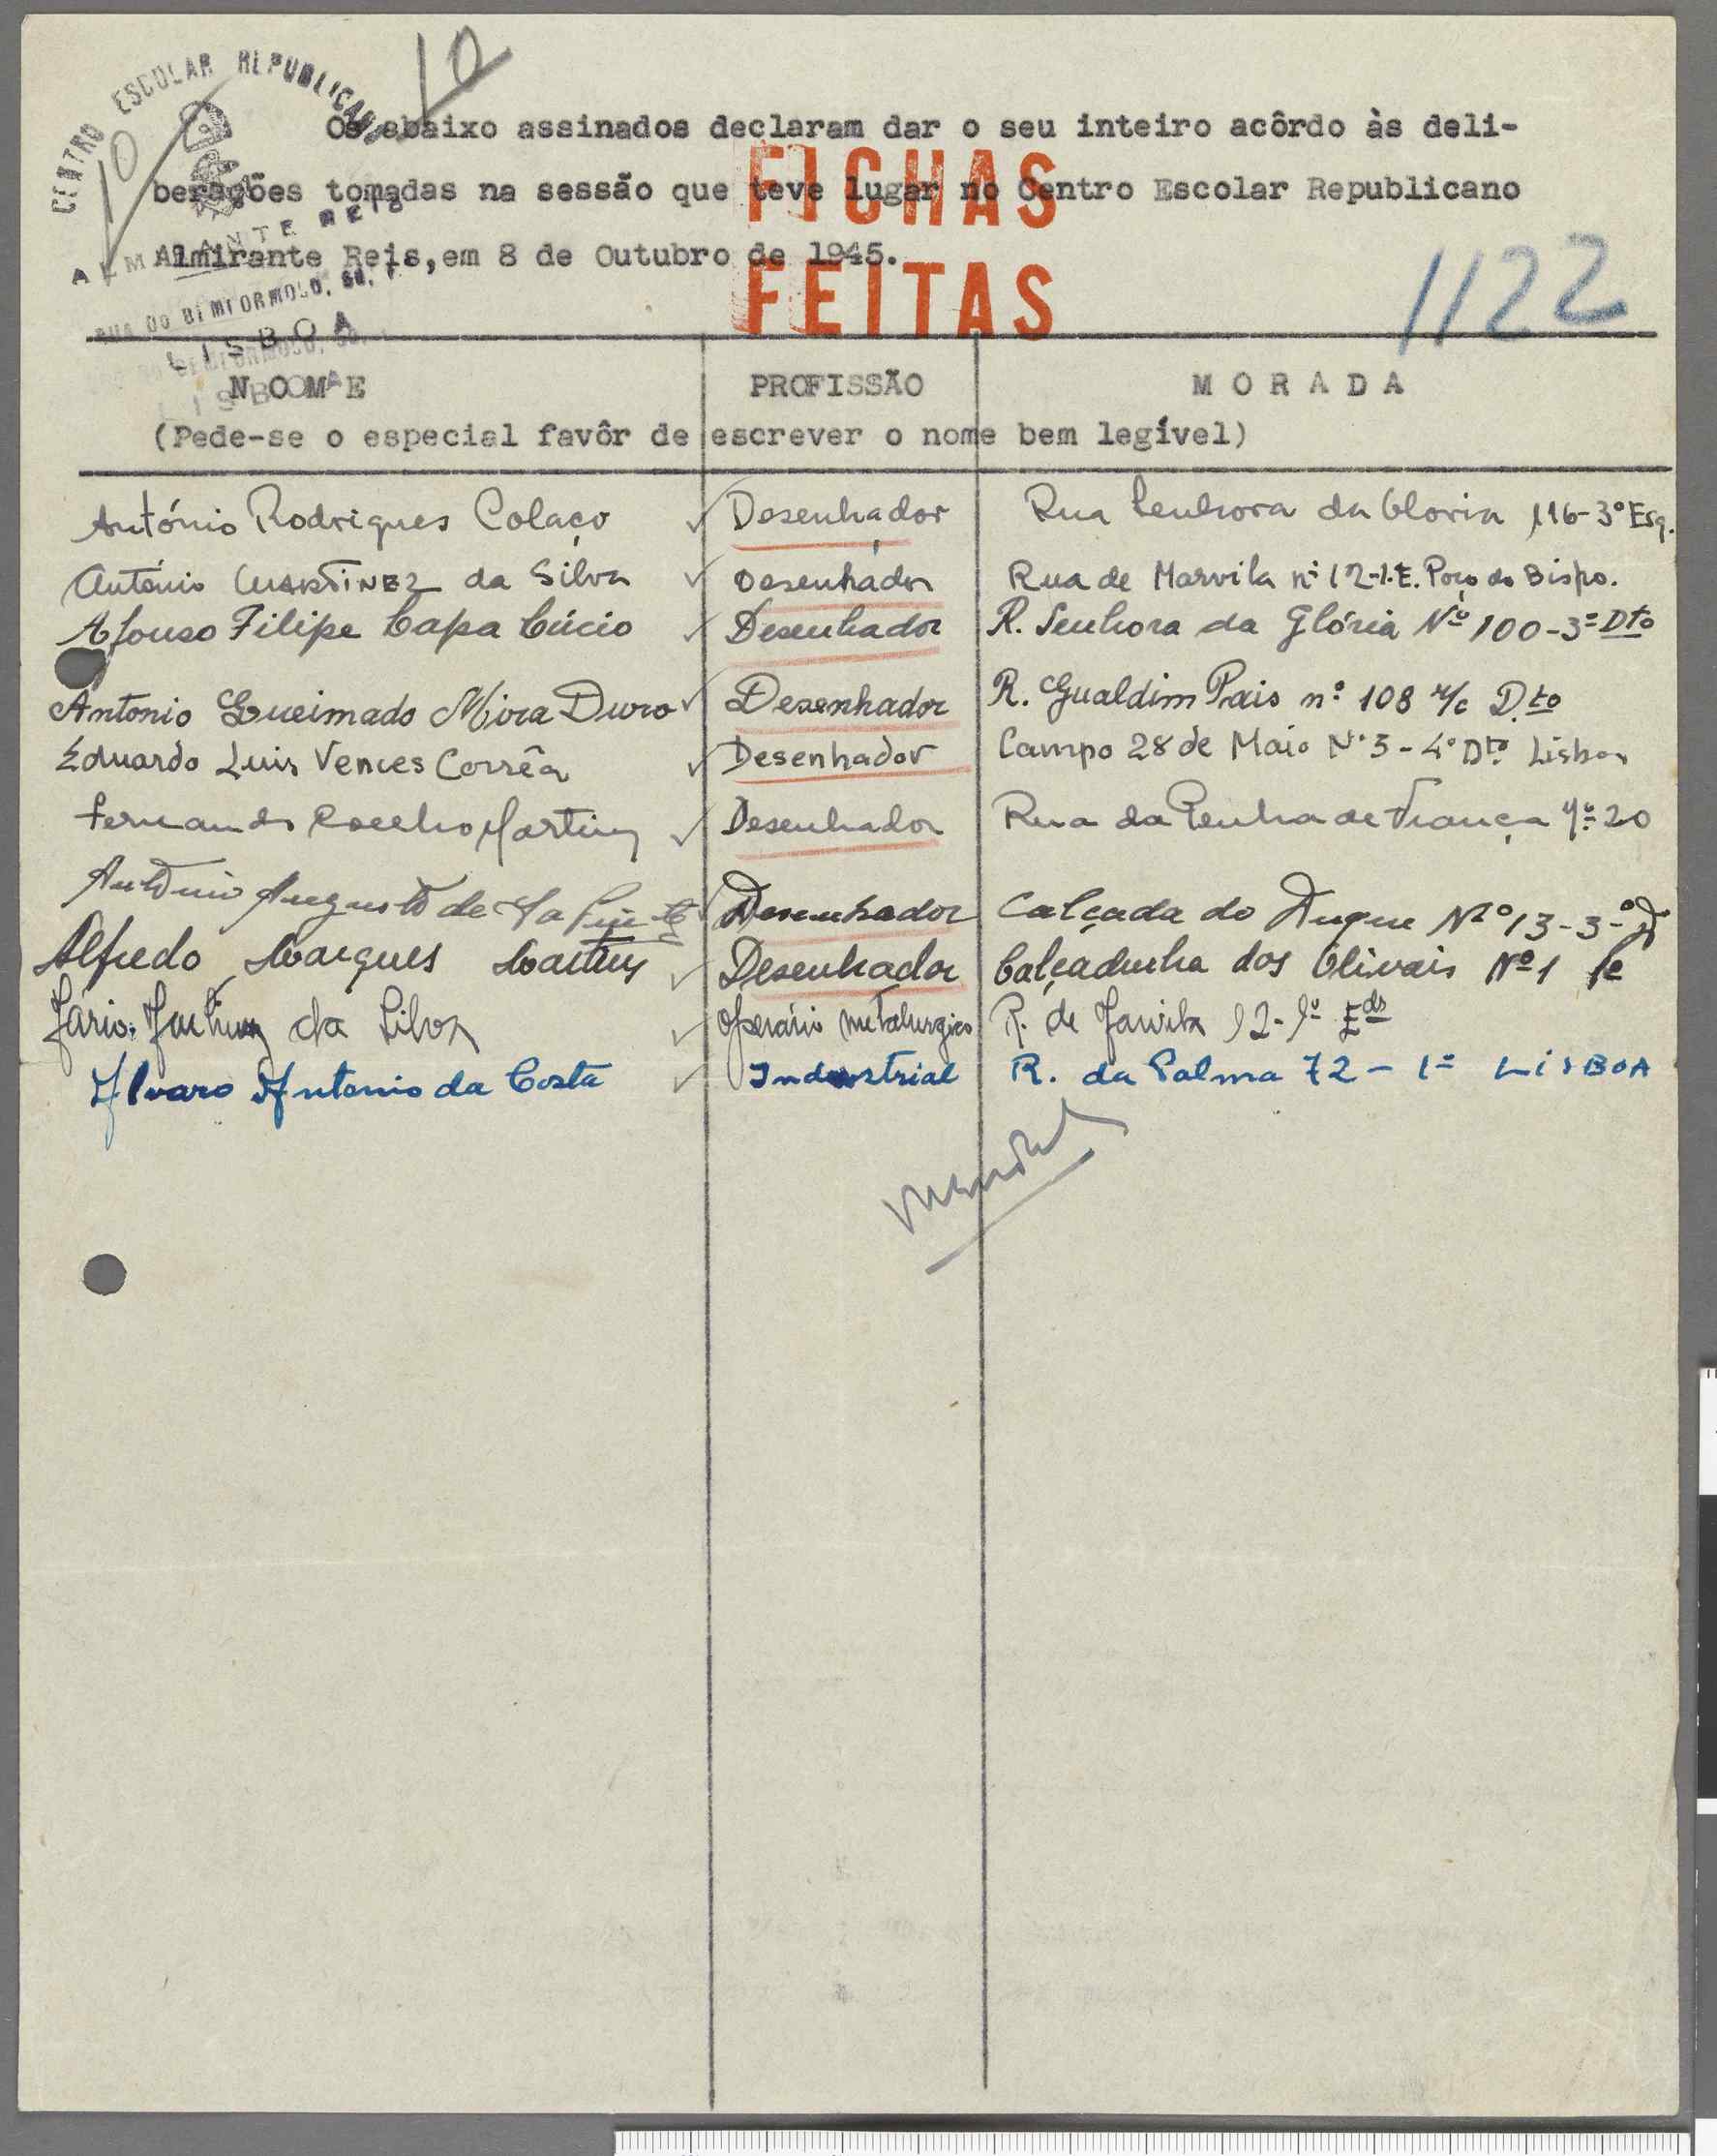 CENTRO ESCOLAR REPUBLICANO
ALMIRANTE REIS
RUA DO BEMFORMOSO, 50, 1.º
LISBOA
10
10
Os abaixo assinados declaram dar o seu inteiro acôrdo às deli-
berações tomadas na sessão que teve lugar no Centro Escolar Republicano
Almirante Reis, em 8 de Outubro de 1945.
FICHAS
FEITAS
1122
NOME PROFISSÃO MORADA
(Pede-se o especial favôr de escrever o nome bem legível)
António Rodrigues Colaço Desenhador Rua Senhora da Gloria, 116-3º Esq.
António MARTINEZ da Silva Desenhador Rua de Marvila nº 12-1.E. Poço do Bispo.
Afonso Filipe Capa Cúcio Desenhador R. Senhora da Glória Nº 100-3º Dto
Antonio Queimado Mira Duro Desenhador R. Gualdim Pais nº 108 r/c D.to
Eduardo Luis Vences Corrêa Desenhador Campo 28 de Maio Nº 3-4º Dto Lisboa
Fernando Coelho Martins Desenhador Rua da Penha de França nº 20
António Augusto de Desenhador Calçada do Duque Nº 13-3º D
Alfredo Marques Martins Desenhador Calçadinha dos Olivais Nº 1
Mário Martins da Silva Operário metalurgico R. de Marvila 12-1º Edo
Alvaro Antonio da Costa Industrial R. da Palma 72-1º LISBOA